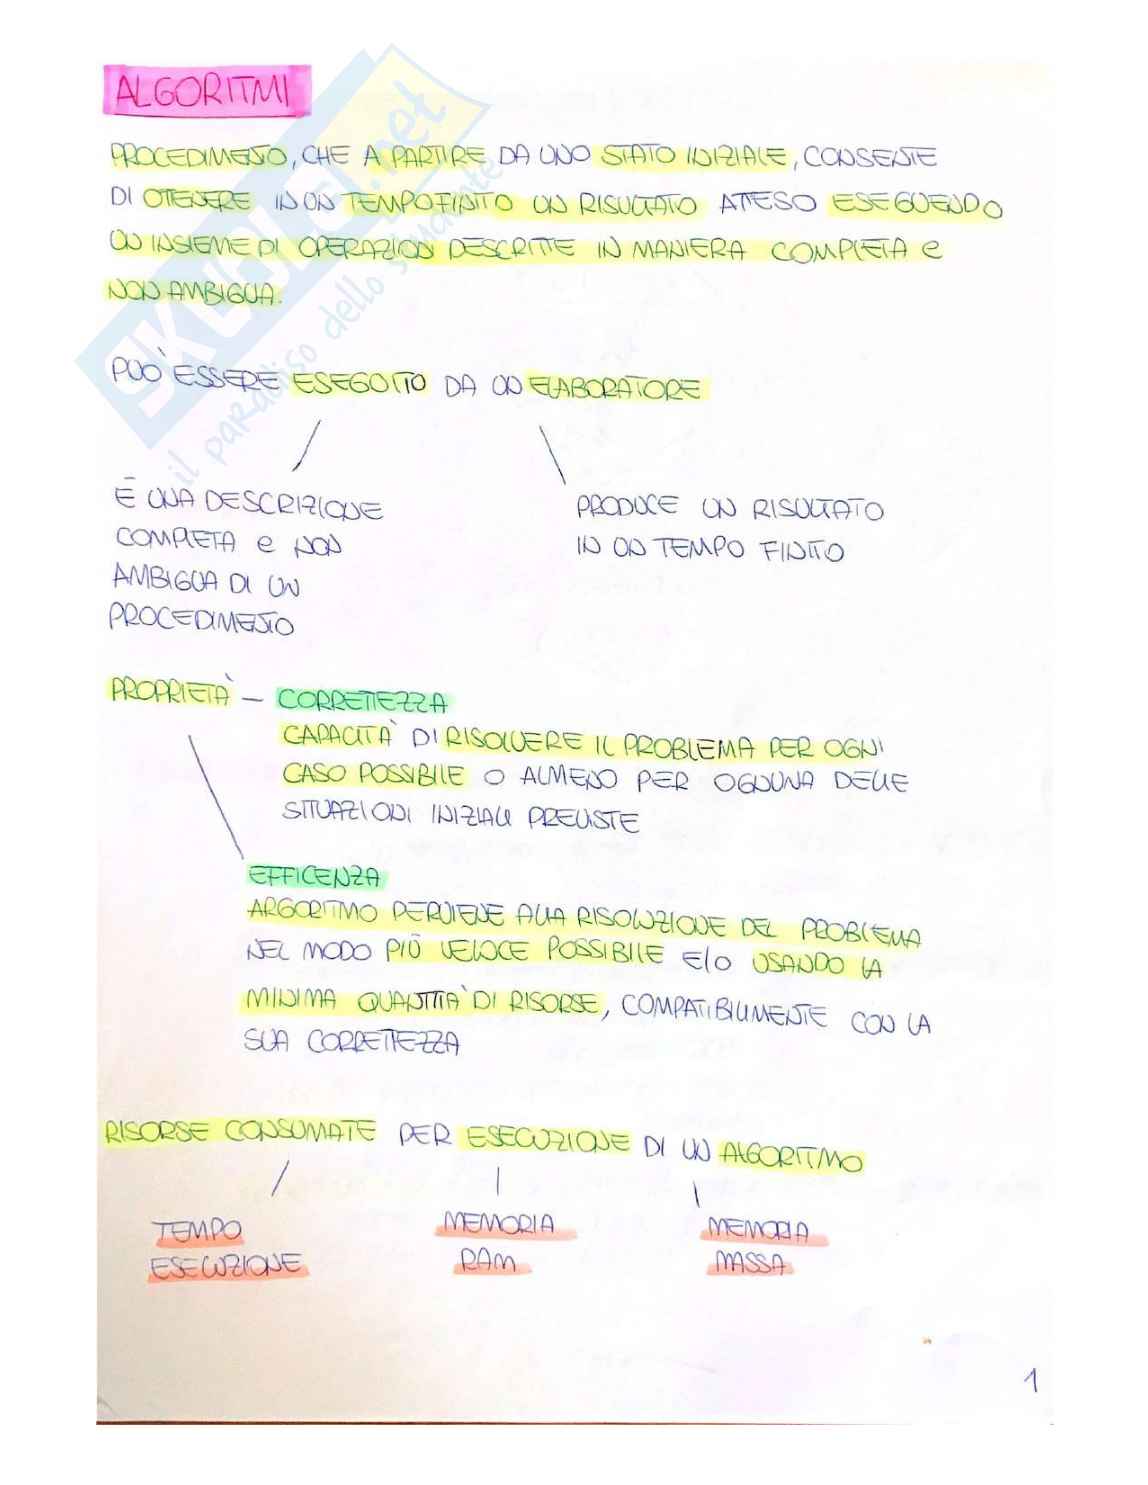 ALGORITMI
PROCEDIMENTO, CHE A PARTIRE DA UNO STATO INIZIALE, CONSENTE
DI OTTENERE IN UN TEMPO FINITO UN RISULTATO ATTESO ESEGUENDO
UN INSIEME DI OPERAZIONI DESCRITTE IN MANIERA COMPLETA e
NON AMBIGUA.
PUO' ESSERE ESEGUITO DA UN ELABORATORE
È UNA DESCRIZIONE
COMPLETA e NON
AMBIGUA DI UN
PROCEDIMENTO
PRODUCE UN RISULTATO
IN UN TEMPO FINITO
PROPRIETÀ - CORRETTEZZA
CAPACITÀ DI RISOLVERE IL PROBLEMA PER OGNI
CASO POSSIBILE O ALMENO PER OGNUNA DELLE
SITUAZIONI INIZIALI PREVISTE
EFFICENZA
ARGORITMO PERVIENE ALLA RISOLUZIONE DEL PROBLEMA
NEL MODO PIÙ VELOCE POSSIBILE E/O USANDO LA
MINIMA QUANTITÀ DI RISORSE, COMPATIBILMENTE CON LA
SUA CORRETTEZZA
RISORSE CONSUMATE PER ESECUZIONE DI UN ALGORITMO
TEMPO
ESECUZIONE
MEMORIA
RAM
MEMORIA
MASSA
1
SKUOLA.net
il paradiso dello studente